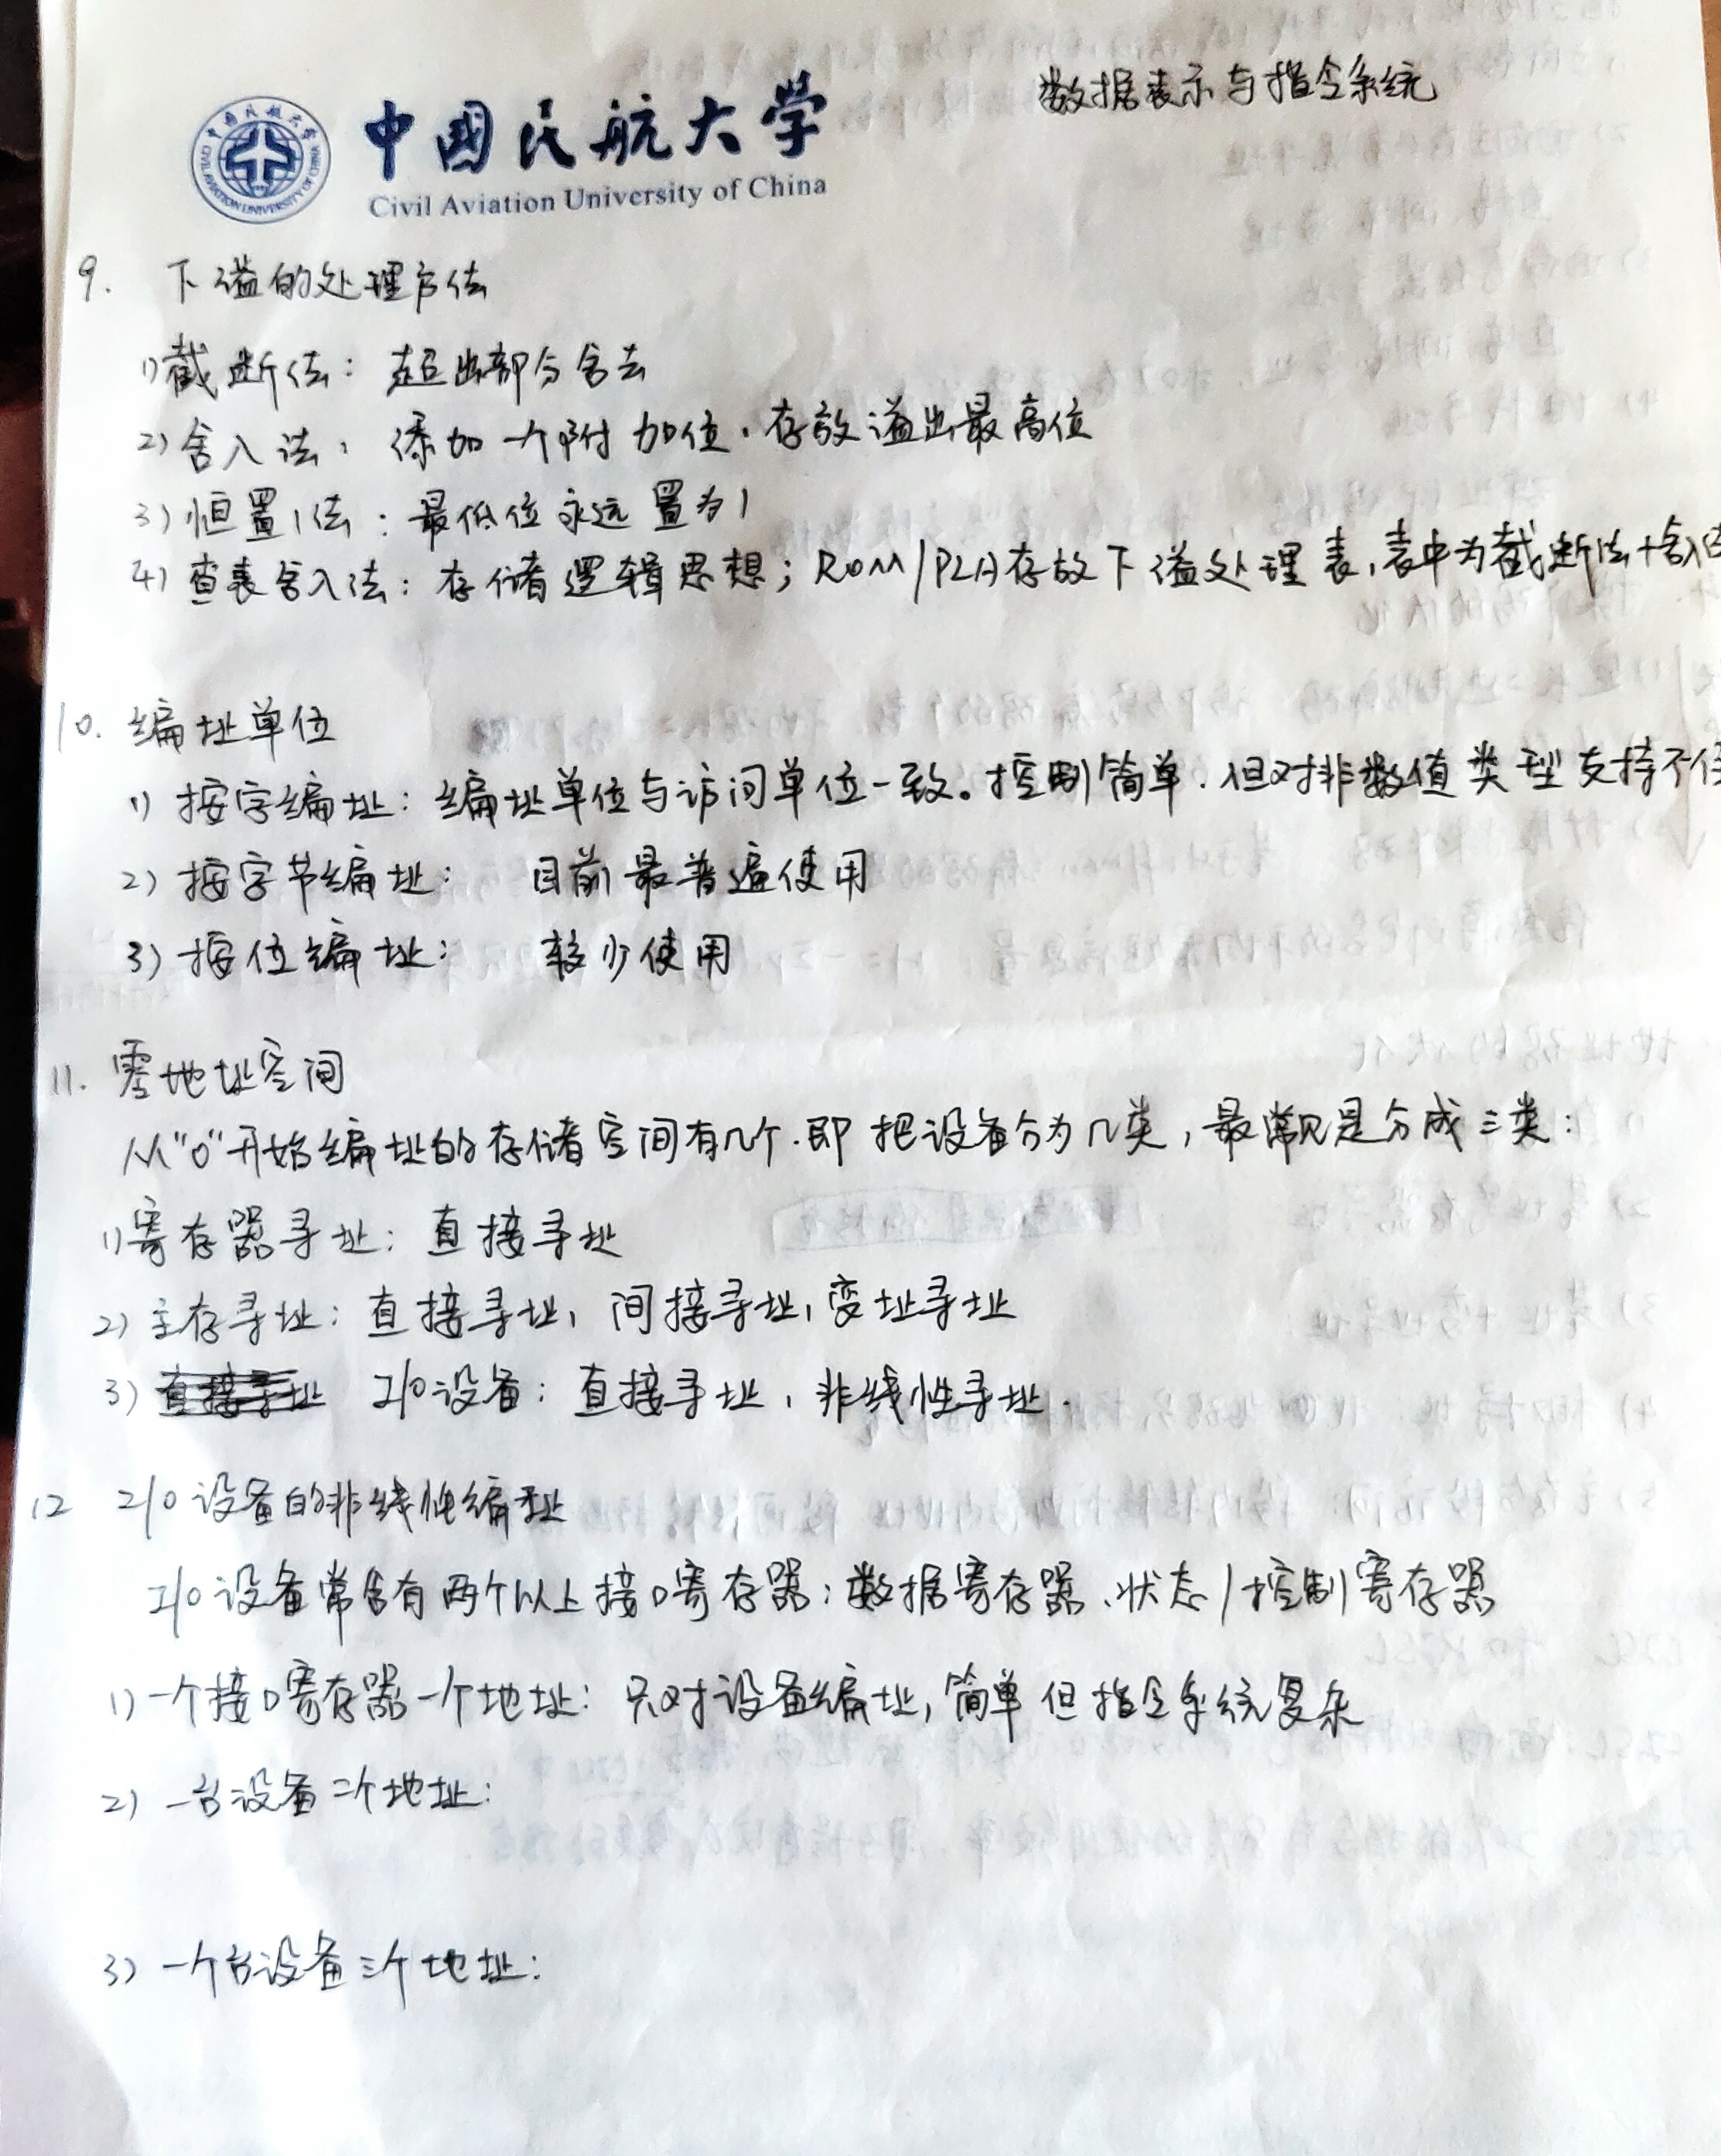 数据表示与指令系统
中国民航大学
Civil Aviation University of China
9. 下溢的处理方法
1) 截断法: 超出部分舍去
2) 舍入法: 添加一个附加位,存放溢出最高位
3) 恒置1法: 最低位永远置为1
4) 查表舍入法: 存储逻辑思想; ROM/PLA存放下溢处理表,表中为截断法+舍入
10. 编址单位
1) 按字编址: 编址单位与访问单位一致。控制简单.但对非数值类型支持不
2) 按字节编址: 目前最普遍使用
3) 按位编址: 较少使用
11. 零地址空间
从"0"开始编址的存储空间有几个.即把设备分为几类,最常见是分成三类:
1) 寄存器寻址: 直接寻址
2) 主存寻址: 直接寻址, 间接寻址, 变址寻址
3) 直接寻址 I/O设备: 直接寻址, 非线性寻址.
12 I/O设备的非线性编址
I/O设备常含有两个以上接口寄存器: 数据寄存器、状态/控制寄存器
1) 一个接口寄存器一个地址: 只对设备编址, 简单但指令系统复杂
2) 一台设备二个地址:
3) 一个台设备三个地址: